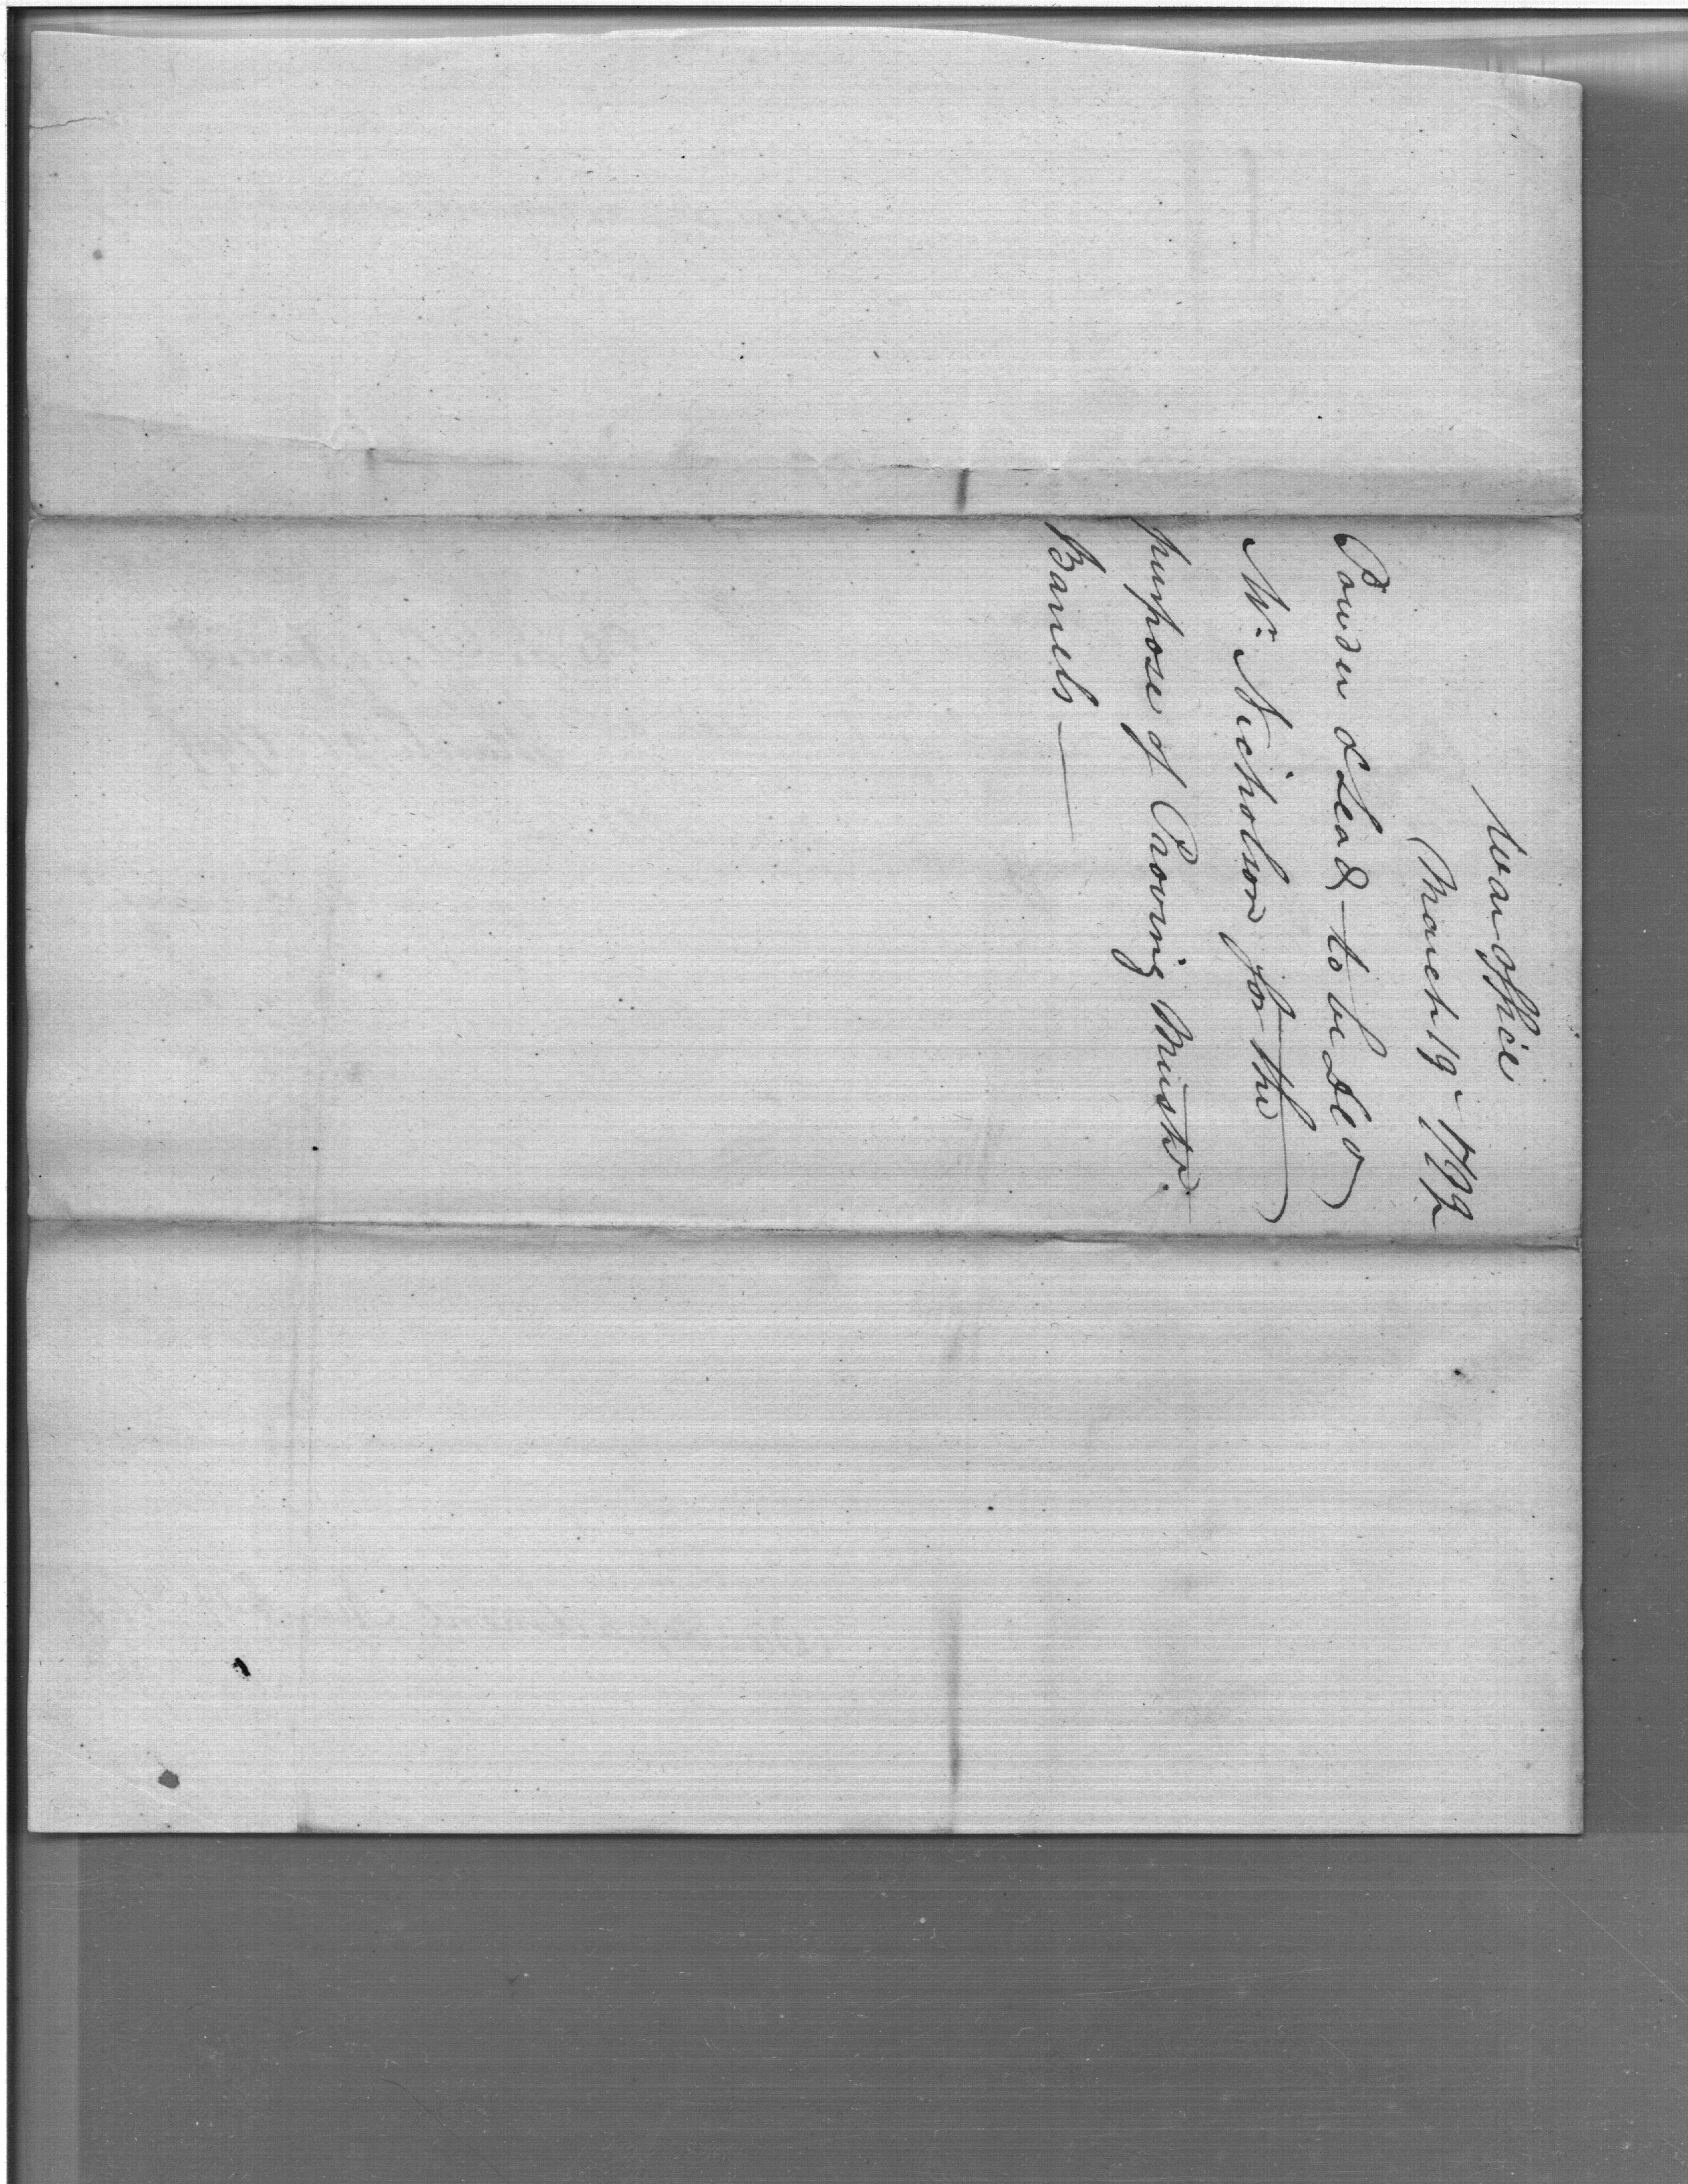 War Office
March 19 1799
Powder & Lead to be del'd
Mr. Nicholson for the
purpose of Proving Muskt.
Barrels —